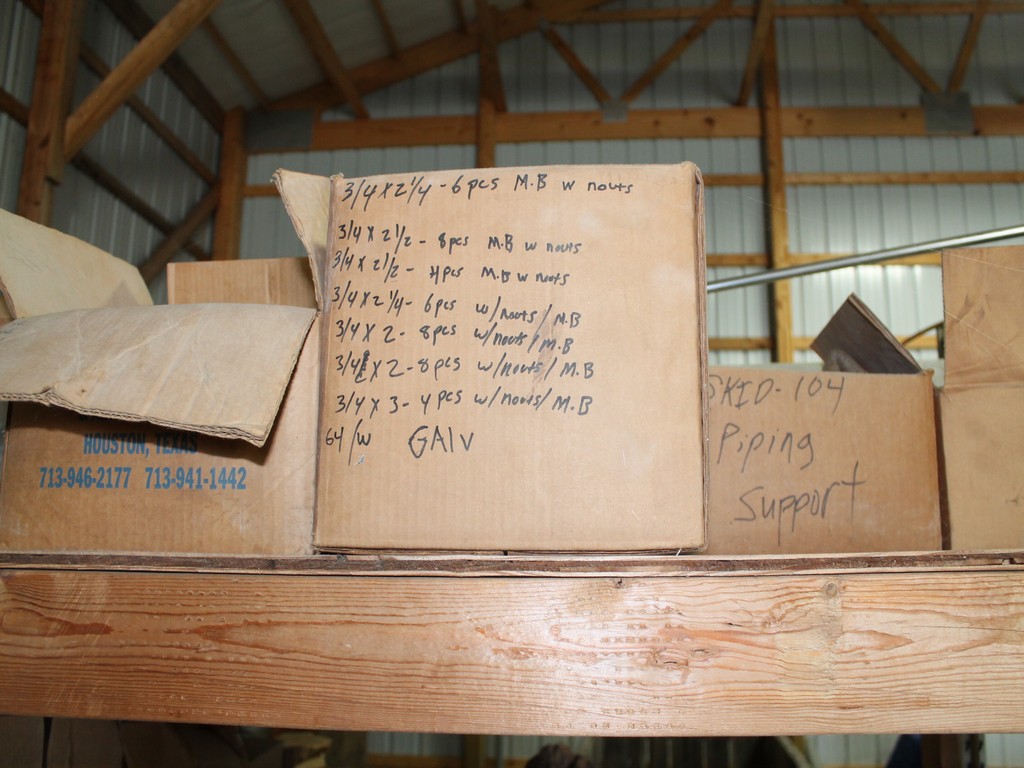 3/4 x 2 1/4 - 6 pcs M.B w nouts
3/4 x 2 1/2 - 8 pcs M.B w nouts
3/4 x 2 1/2 - 4 pcs M.B w nouts
3/4 x 2 1/4 - 6 pcs w/nouts/M.B
3/4 x 2 - 8 pcs w/nouts/M.B
3/4 x 2 - 8 pcs w/nouts/M.B
3/4 x 3 - 4 pcs w/nouts/M.B
64/w GAlv
HOUSTON, TEXAS
713-946-2177 713-941-1442
SKID-104
Piping
Support